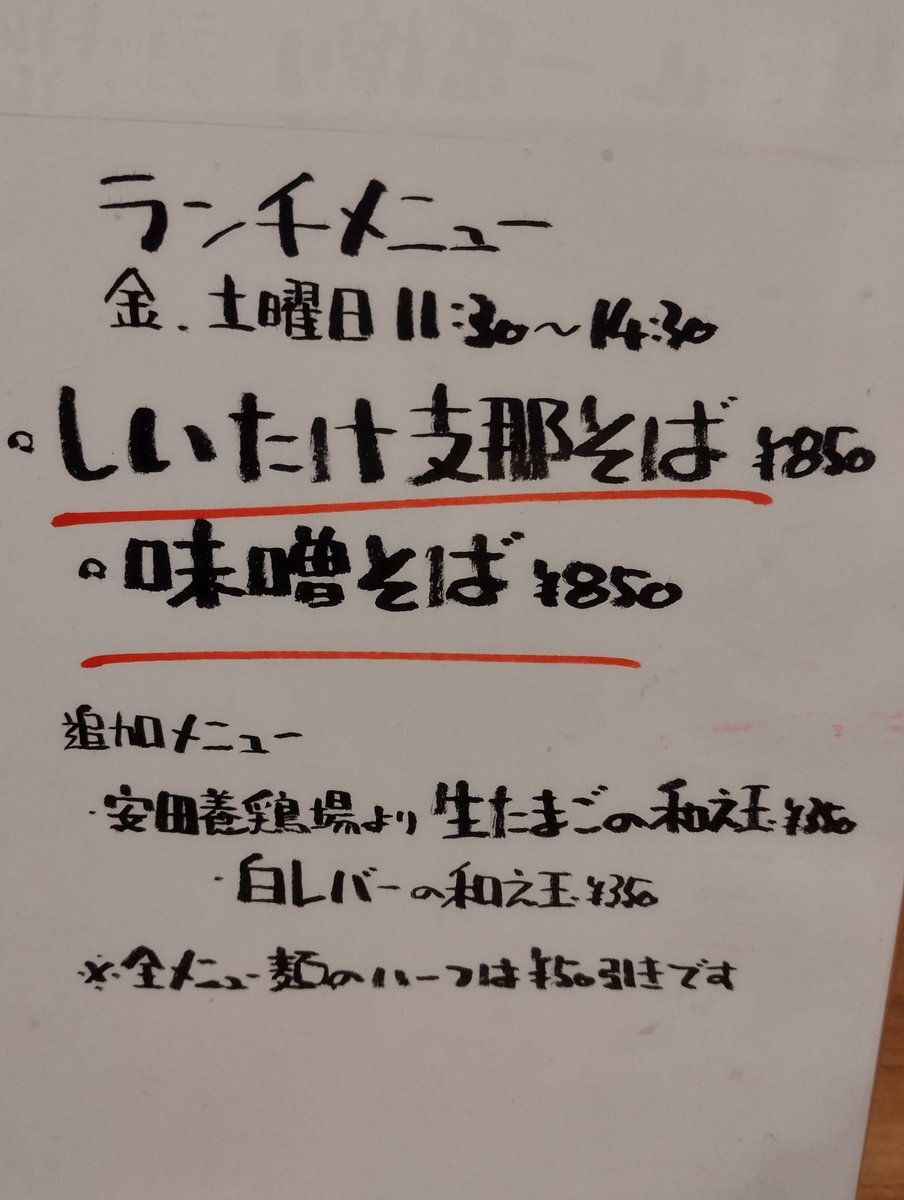 ランチメニュー
金.土曜日 11:30〜14:30
。しいたけ支那そば ¥850
。味噌そば ¥850
追加メニュー
・安田養鶏場より 生たまごの和え玉 ¥350
・白レバーの和え玉 ¥350
※全メニュー麺のハーフは¥50引きです